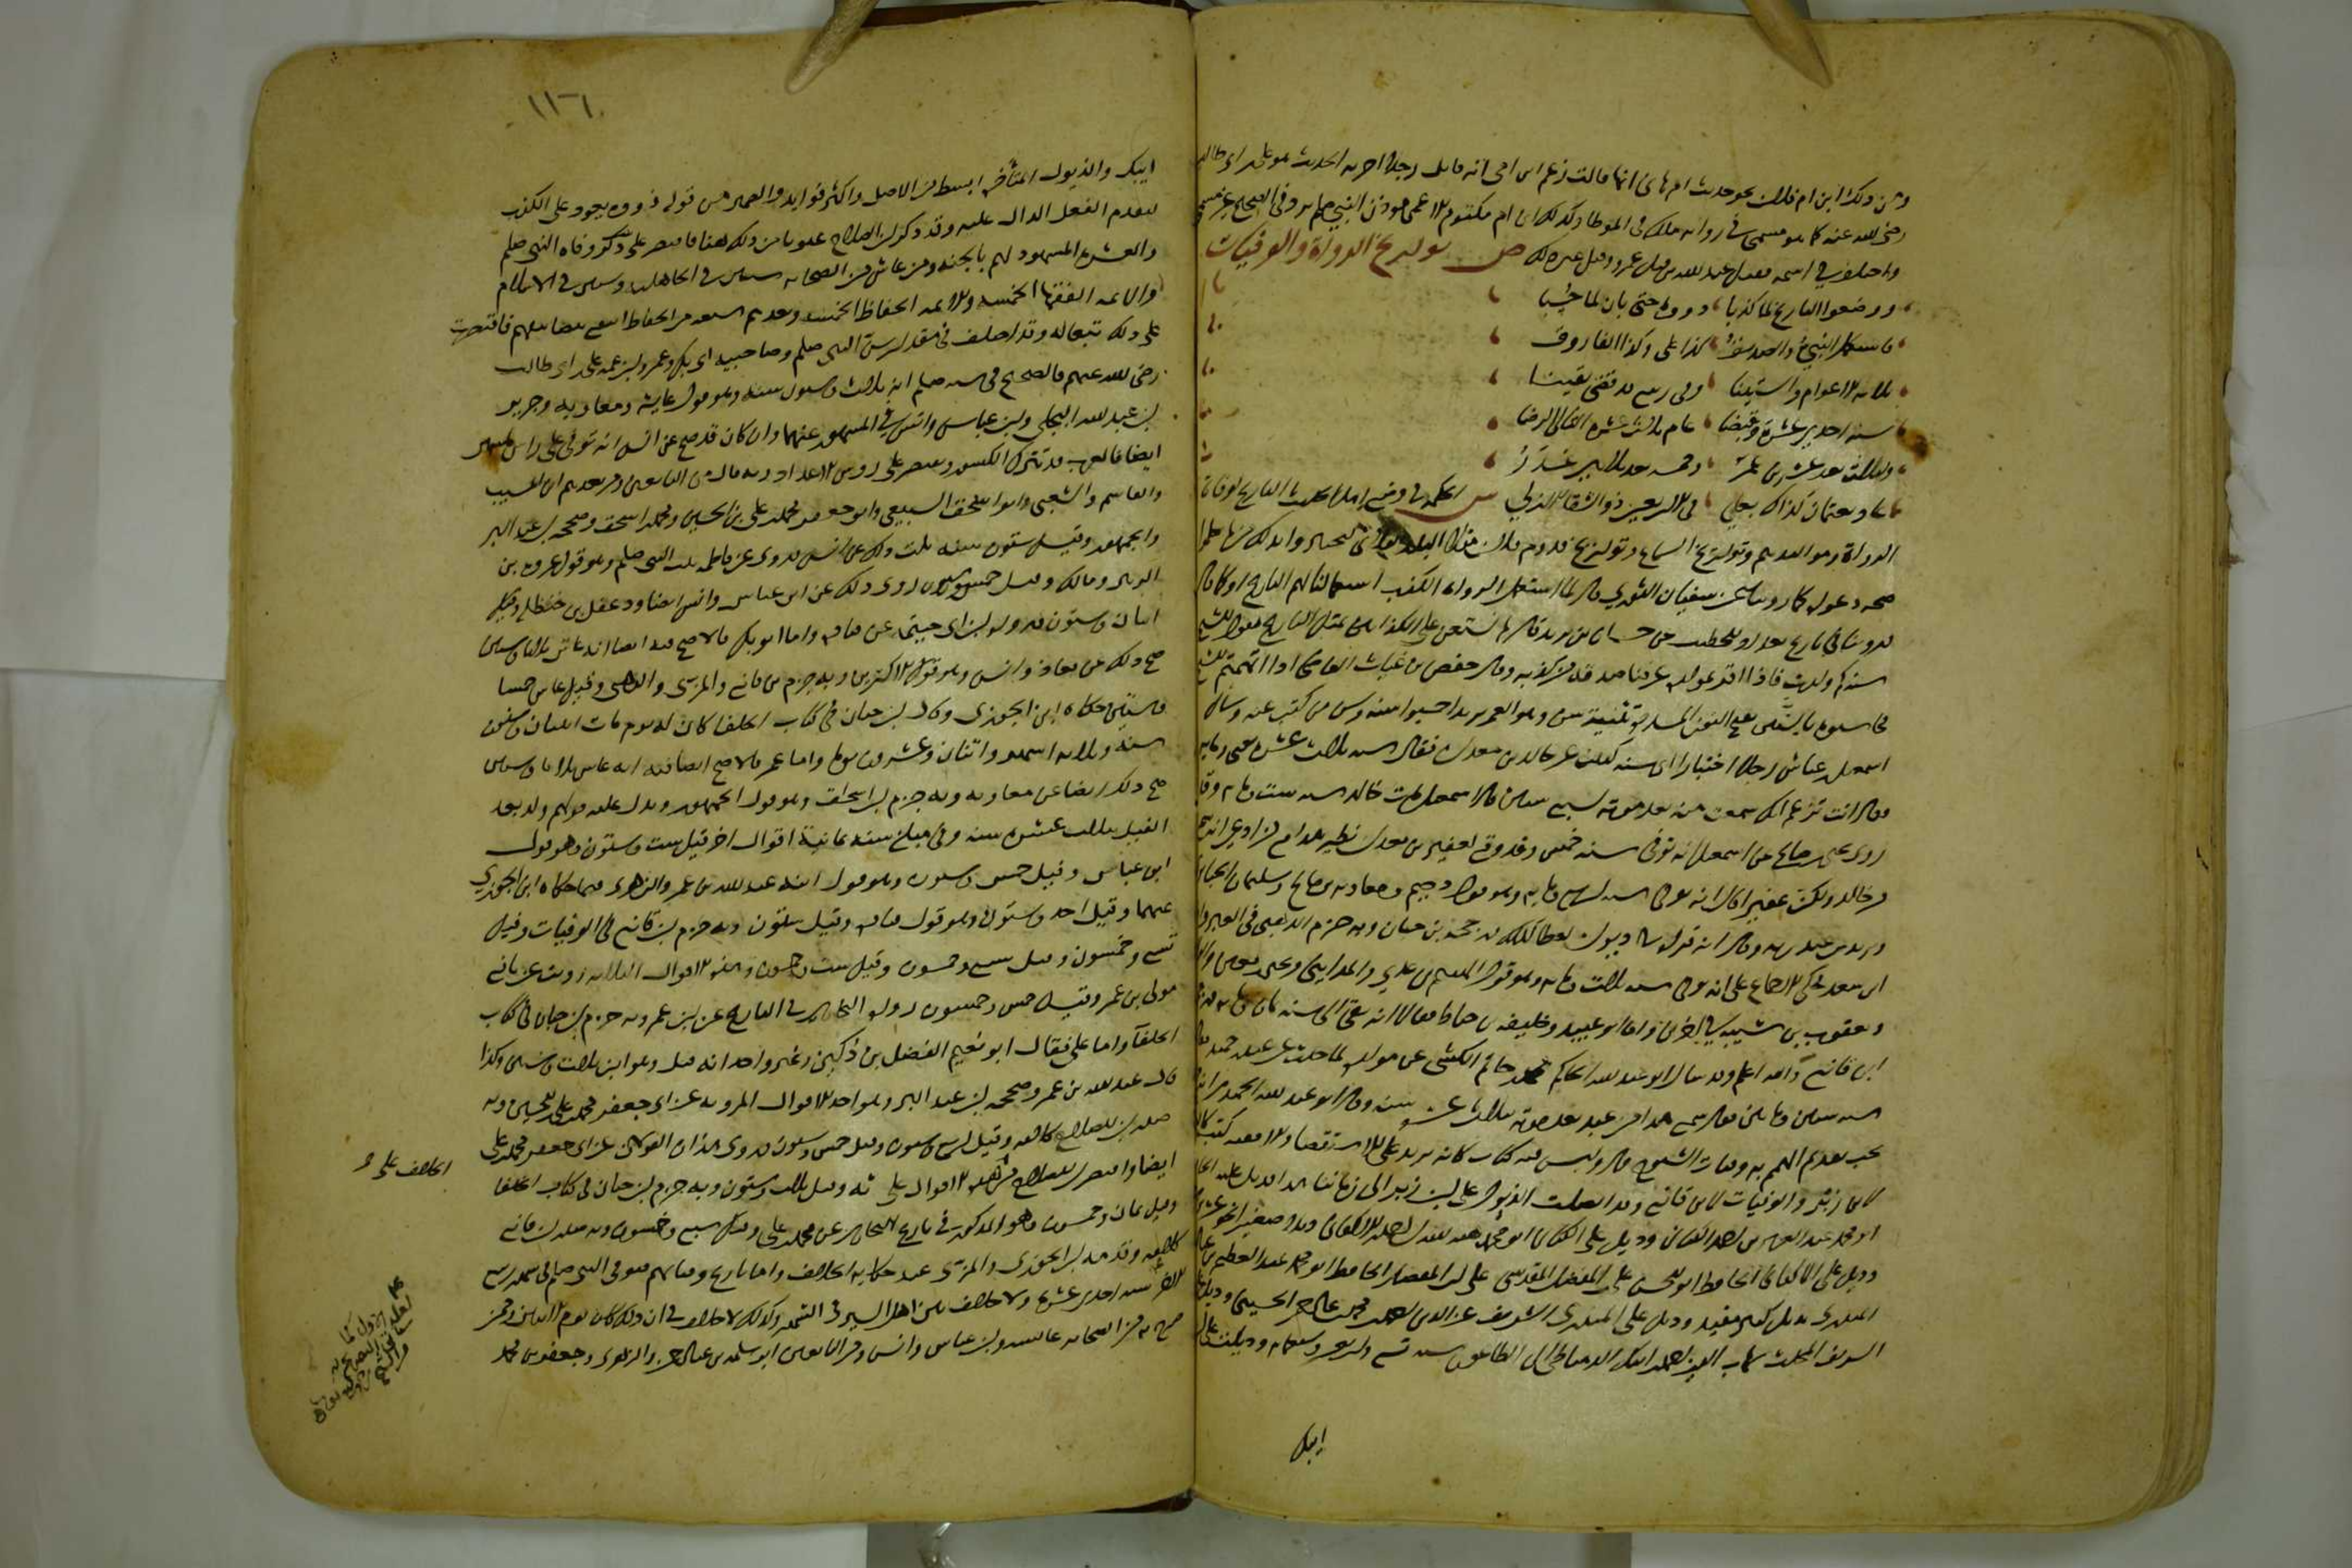 ومن ذلك ابن ام فلان نحو حديث ام هانئ انها قالت زعم ابن امي انه قاتل رجلا اجرته الحديث هو علي بن ابي طالب
رضي الله عنه كما هو مسمى في رواية مالك في الموطا وكذلك ابن ام مكتوم الاعمى موذن النبي صلعم يرد في الصحيح غير مسمى
واختلف في اسمه فقيل عبد الله وقيل عمرو وقيل غير ذلك ص تواريخ الرواة والوفيات
ووضعوا التاريخ لما كذبا ذووه حتى بان لما حسبا
فاستكمل النبي والصديق كذا علي وكذا الفاروق
ثلاثة الاعوام والستينا وفي ربيع قد قضى يقينا
سنة احدى عشرة وقبضا عام ثلاث عشرة التالي الرضا
ولثلاث بعد عشرين عمر وخمسة بعد ثلاثين غدر
عاد بعثمان كذاك بعلي في الاربعين ذو الشقاء الازلي س الحكمة في وضع اهل الحديث التاريخ لوفاة
الرواة ومواليدهم وتواريخ السماع وتواريخ قدوم فلان مثلا البلد الفلاني ليختبروا بذلك من لم يعلموا
صحة دعواه كما روينا عن سفيان الثوري قال لما استعمل الرواة الكذب استعملنا لهم التاريخ او كما قال
وروينا في تاريخ بغداد للخطيب عن حسان بن يزيد قال لم نستعن على الكذابين بمثل التاريخ نقول للشيخ
سنة كم ولدت فاذا اقر بمولده عرفنا صدقه من كذبه وقال حفص بن غياث القاضي اذا اتهمتم الشيخ
فحاسبوه بالسنين بفتح النون المشددة تثنية سن وهو العمر يريد احسبوا سنه وسن من كتب عنه وسال
اسمعيل بن عياش رجلا اختبارا اي سنة كتبت عن خالد بن معدان فقال سنة ثلاث عشرة يعني وماية
فقال انت تزعم انك سمعت منه بعد موته بسبع سنين قال اسمعيل مات خالد سنة ست وماية وقد
روى يحيى بن صالح عن اسمعيل انه توفي سنة خمس وقد وقع لعفير بن معدان نظير هذا مع من ادعى انه سمع
من خالد ولكن عفير قال انه توفي سنة اربع وماية وهو قول دحيم ومعاوية بن صالح وسليمان الخبائري
ويزيد بن عبد ربه وقال انه قراه في ديوان العطاء كذلك وجزم به ابن حبان وبه جزم الذهبي في العبر واما
ابن سعد فحكى الاجماع على انه توفي سنة ثلاث وماية وهو قول الهيثم بن عدي والمدايني ويحيى بن معين والفلاس
ويعقوب بن شيبة في اخرين واما ابو عبيد وخليفة بن خياط فقالا انه بقي الى سنة ثمان وماية
ابن قانع والله اعلم وقد سال ابو عبد الله الحاكم محمد بن حاتم الكشي عن مولده لما حدث عن عبد بن حميد فقال
سنة ستين ومايتين فقال سمع هذا من عبد بعد موته بثلاث عشرة سنة وقال ابو عبد الله الحميدي انه
يجب تقديم التهمم به وفيات الشيوخ قال وليس فيه كتاب كانه يريد على الاستقصاء والا ففيه كتب كالوفيات
لابن زبر والوفيات لابن قانع وقد اتصلت الذيول على ابن زبر الى زماننا هذا فذيل عليه الحافظ
ابو محمد عبد العزيز بن احمد الكتاني وذيل على الكتاني ابو محمد هبة الله بن احمد الاكفاني ذيلا صغيرا نحو عشرين
وذيل على الاكفاني الحافظ ابو الحسن علي بن المفضل المقدسي وذيل على ابن المفضل الحافظ ابو محمد عبد العظيم بن عبد
المنذري بذيل كبير مفيد وذيل على المنذري الشريف عز الدين احمد بن محمد بن عبد الرحمن الحسيني وذيل على
الشريف المحدث شهاب الدين احمد بن ايبك الدمياطي الى الطاعون سنة تسع واربعين وسبعماية وذيلت على ابن
ايبك
١١٦
ايبك والذيول المتاخرة ابسط من الاصل واكثر فوايد والضمير في قولي ذووه يعود على الكذب
لتقدم الفعل الدال عليه وقد ذكر ابن الصلاح عيونا من ذلك هنا فاقتصر على ذكر وفاة النبي صلعم
والعشرة المشهود لهم بالجنة ومن عاش من الصحابة ستين في الجاهلية وستين في الاسلام
والايمة الفقهاء الخمسة والايمة الحفاظ الخمسة وبعدهم سبعة من الحفاظ انتفع بتصانيفهم فاقتصرت
على ذلك تبعا له وقد اختلف في مقدار سن النبي صلعم وصاحبيه ابي بكر وعمر وابن عمه علي بن ابي طالب
رضي الله عنهم فالصحيح في سنه صلعم انه ثلاث وستون سنة وهو قول عايشة ومعاوية وجرير
بن عبد الله البجلي وابن عباس وانس في المشهور عنهما وان كان قد صح عن انس انه توفي على راس ستين
ايضا فالعرب قد تترك الكسور وتقتصر على رؤوس الاعداد وبه قال من التابعين ومن بعدهم ابن المسيب
والقاسم والشعبي وابو اسحق السبيعي وابو جعفر محمد بن علي بن الحسين ومحمد بن اسحق وصححه ابن عبد البر
والجمهور وقيل ستون سنة ثبت ذلك عن انس وروي عن فاطمة بنت النبي صلعم وهو قول عروة بن
الزبير ومالك وقيل خمس وستون روي ذلك عن ابن عباس وانس ايضا ودغفل بن حنظلة وقيل
اثنان وستون رواه ابن ابي خيثمة عن قتادة واما ابو بكر فالاصح فيه ايضا انه عاش ثلاثا وستين
صح ذلك عن معاوية وانس وهو قول الاكثرين وبه جزم ابن قانع والمزي والذهبي وقيل عاش خمسا
وستين حكاه ابن الجوزي وقال ابن حبان في كتاب الخلفا كان له يوم مات اثنتان وستون
سنة وثلاثة اشهر واثنان وعشرون يوما واما عمر فالاصح ايضا فيه انه عاش ثلاثا وستين
صح ذلك ايضا عن معاوية وبه جزم ابن اسحق وهو قول الجمهور ويدل عليه قولهم ولد بعد
الفيل بثلاث عشرة سنة وفي مبلغ سنه ثمانية اقوال اخر قيل ست وستون وهو قول
ابن عباس وقيل خمس وستون وهو قول ابنه عبد الله بن عمر والزهري فيما حكاه ابن الجوزي
عنهما وقيل احد وستون وهو قول قتادة وقيل ستون وبه جزم ابن قانع في الوفيات وقيل
تسع وخمسون وقيل سبع وخمسون وقيل ست وخمسون وهذه الاقوال الثلاثة رويت عن نافع
مولى ابن عمر وقيل خمس وخمسون رواه البخاري في التاريخ عن ابن عمر وبه جزم ابن حبان في كتاب
الخلفا واما علي فقال ابو نعيم الفضل بن دكين وغير واحد انه قتل وهو ابن ثلاث وستين وكذا
قال عبد الله بن عمر وصححه ابن عبد البر وهو احد الاقوال المروية عن ابي جعفر محمد بن علي بن الحسين وبه
صدر ابن الصلاح كلامه وقيل اربع وستون وقيل خمس وستون وروي هذان القولان عن ابي جعفر محمد بن علي
ايضا واقتصر ابن الصلاح من هذه الاقوال على ثلثه وقيل ثلاث وستون وبه جزم ابن حبان في كتاب الخلفا
وقيل ثمان وخمسون وهو المذكور في تاريخ البخاري عن محمد بن علي وقيل سبع وخمسون وبه صدر ابن قانع
كلامه وقدمه ابن الجوزي والمزي عند حكاية الخلاف واما تاريخ وفياتهم فتوفي النبي صلعم في شهر ربيع
الاول سنة احدى عشرة ولا خلاف بين اهل السير في الشهر وكذلك لا خلاف في ان ذلك كان يوم الاثنين وممن
صرح به من الصحابة عايشة وابن عباس وانس ومن التابعين ابو سلمة بن عبد الرحمن والزهري وجعفر بن محمد
الخلاف على